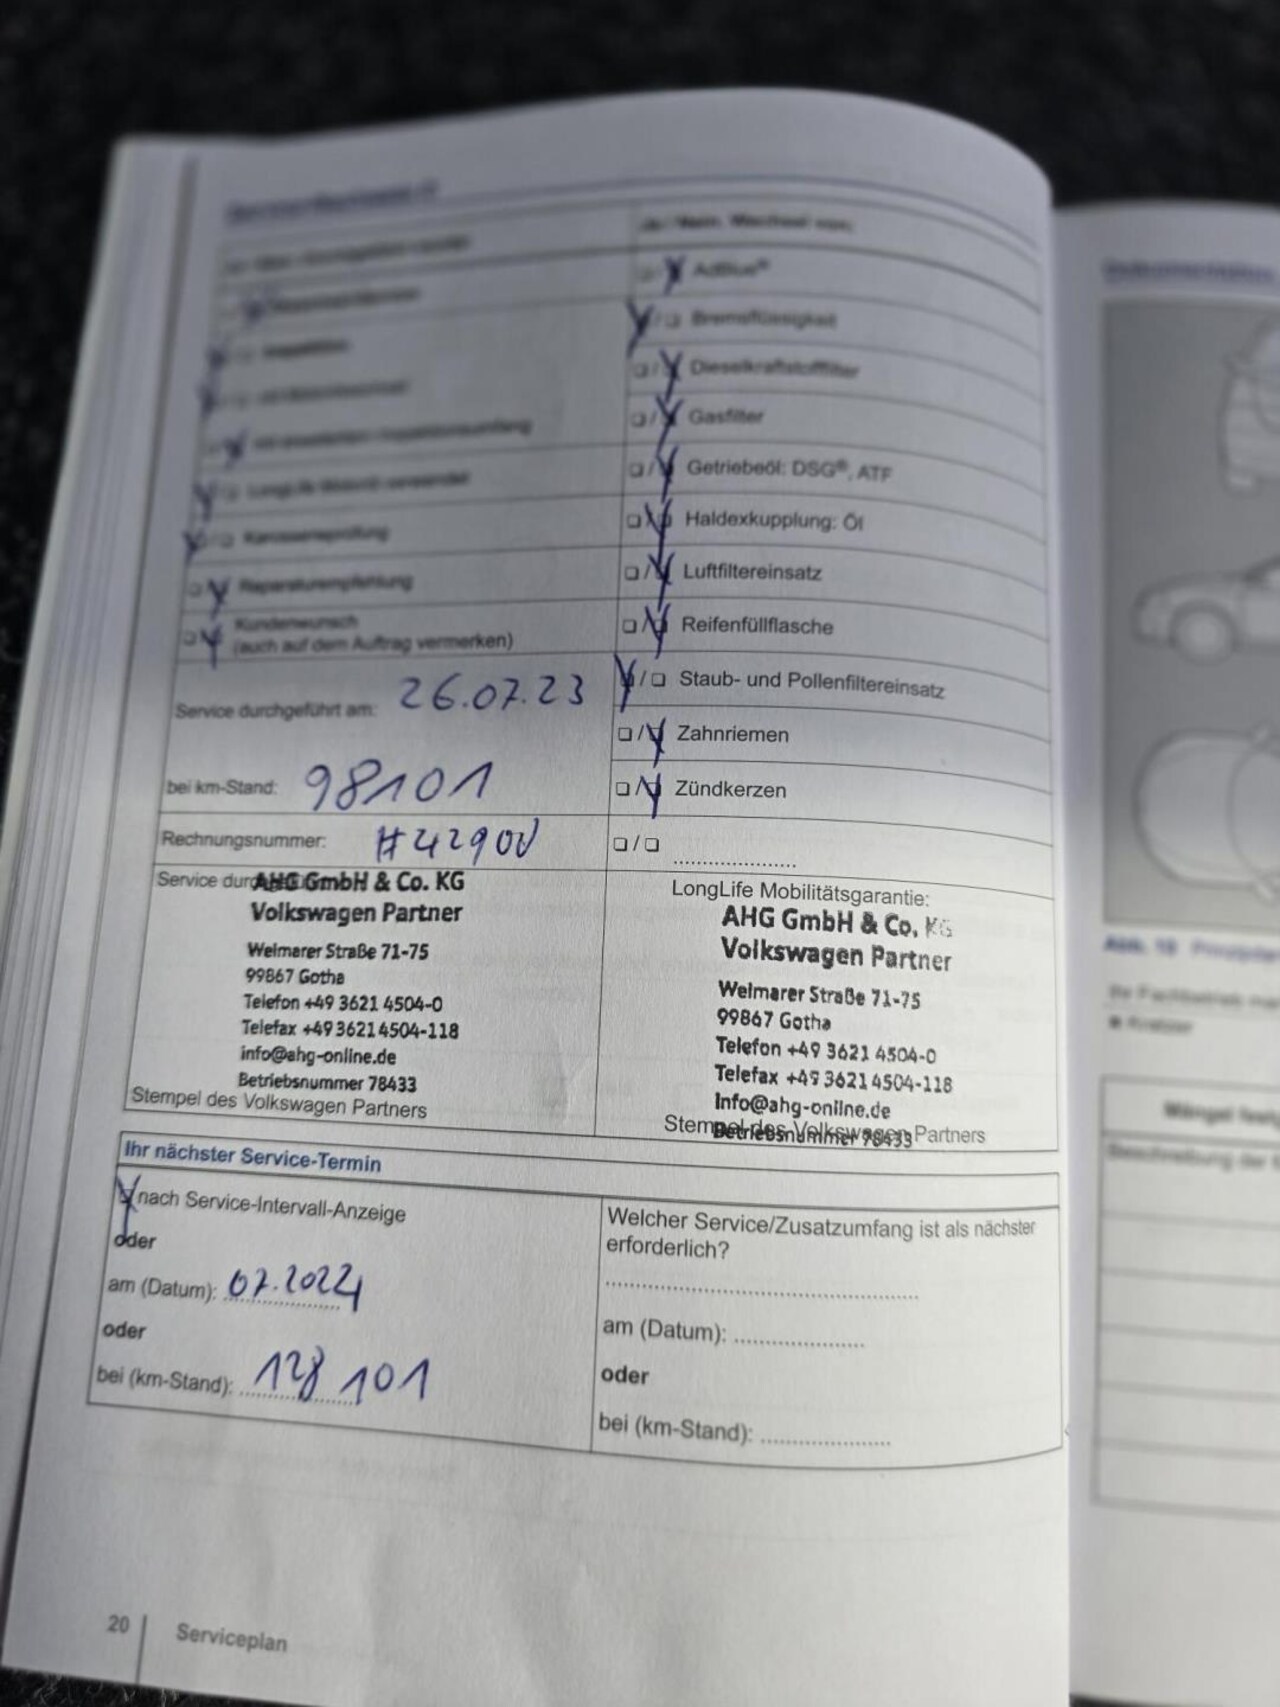 Ja / Nein, Wechsel von:
AdBlue®
Bremsflüssigkeit
Dieselkraftstofffilter
Gasfilter
Getriebeöl: DSG®, ATF
Haldexkupplung: Öl
Luftfiltereinsatz
Reifenfüllflasche
Staub- und Pollenfiltereinsatz
Zahnriemen
Zündkerzen
Inspektion
mit erweitertem Inspektionsumfang
LongLife Motoröl verwendet
Karosserieprüfung
Reparaturempfehlung
Kundenwunsch
(auch auf dem Auftrag vermerken)
Service durchgeführt am: 26.07.23
bei km-Stand: 98101
Rechnungsnummer: #42900
Service
AHG GmbH & Co. KG
Volkswagen Partner
Weimarer Straße 71-75
99867 Gotha
Telefon +49 3621 4504-0
Telefax +49 3621 4504-118
info@ahg-online.de
Betriebsnummer 78433
Stempel des Volkswagen Partners
LongLife Mobilitätsgarantie:
AHG GmbH & Co. KG
Volkswagen Partner
Weimarer Straße 71-75
99867 Gotha
Telefon +49 3621 4504-0
Telefax +49 3621 4504-118
info@ahg-online.de
Betriebsnummer 78433
Stempel des Volkswagen Partners
Ihr nächster Service-Termin
nach Service-Intervall-Anzeige
oder
am (Datum): 07.2024
oder
bei (km-Stand): 128 101
Welcher Service/Zusatzumfang ist als nächster
erforderlich?
am (Datum):
oder
bei (km-Stand):
20 Serviceplan
Abb. 18